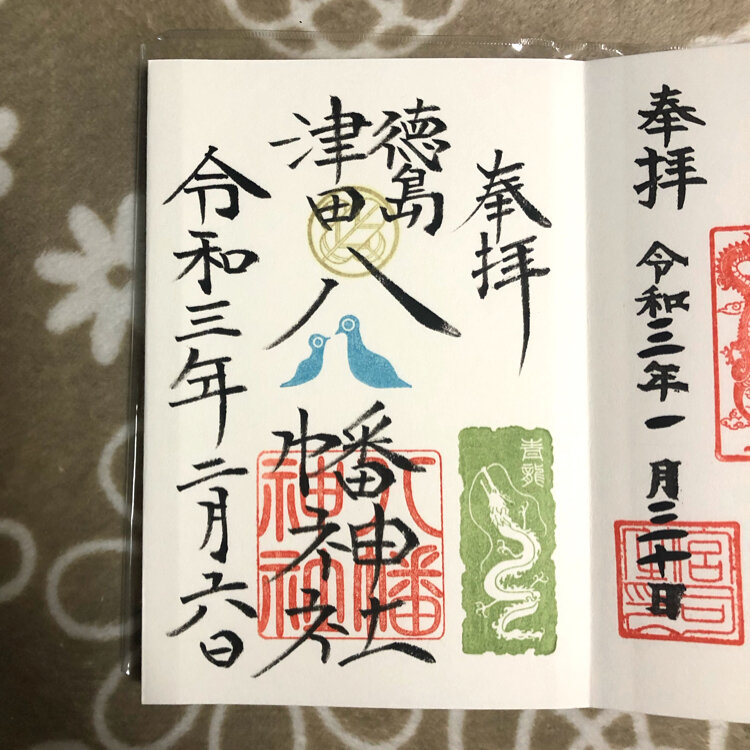 奉拝
令和三年一月二十日
奉拝
青龍
徳島
津田八幡神社
八幡
神社
令和三年二月六日